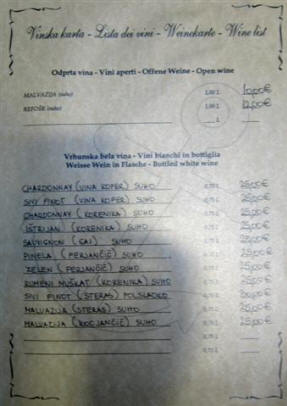 Vinska karta - Lista dei vini - Weinekarte - Wine list
Odprta vina - Vini aperti - Offene Weine - Open wine
MALVAZIJA (suho) 1,00 L 10,00€
REFOŠK (suho) 1,00 L 12,00€
L
Vrhunska bela vina - Vini bianchi in bottiglia
Weisse Wein in Flasche - Bottled white wine
CHARDONNAY (VINA KOPER) SUHO 0,75 L
SIVI PINOT (VINA KOPER) SUHO 0,75 L
CHARDONNAY (KORENIKA) SUHO 0,75 L
ISTRIJAN (KORENIKA) SUHO 0,75 L
SAUVIGNON SUHO 0,75 L
PINELA (FERJANČIČ) SUHO 0,75 L
ZELEN (FERJANČIČ) SUHO 0,75 L
RUMENI MUŠKAT (KORENIKA) SUHO 0,75 L
SIVI PINOT (STERAS) POLSLADKO 0,75 L
MALVAZIJA (STERAS) SUHO 0,75 L
MALVAZIJA SUHO 0,75 L
0,75 L
0,75 L